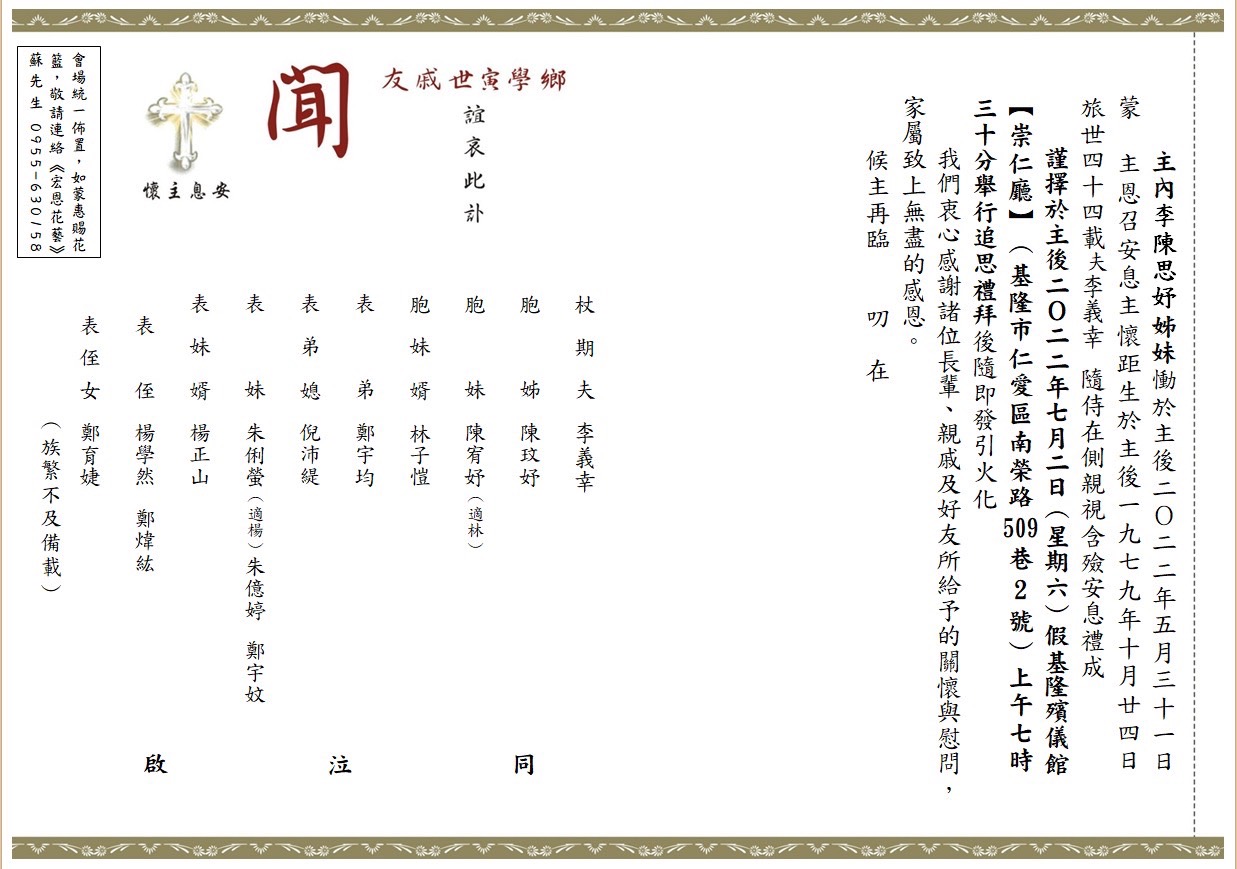 主內李陳思妤姊妹慟於主後二〇二二年五月三十一日
蒙 主恩召安息主懷距生於主後一九七九年十月廿四日
旅世四十四載夫李義幸 隨侍在側親視含殮安息禮成
謹擇於主後二〇二二年七月二日(星期六)假基隆殯儀館
【崇仁廳】(基隆市仁愛區南榮路509巷2號)上午七時
三十分舉行追思禮拜後隨即發引火化
我們衷心感謝諸位長輩、親戚及好友所給予的關懷與慰問,
家屬致上無盡的感恩。
候主再臨 叨 在
鄉學寅世戚友
誼哀此訃
聞
安息主懷
會場統一佈置,如蒙惠賜花
籃,敬請連絡《宏恩花藝》
蘇先生 0955-630158
杖期夫 李義幸
胞姊 陳玟妤
胞妹 陳宥妤(適林)
胞妹婿 林子愷
表弟 鄭宇均
表弟媳 倪沛緹
表妹 朱俐螢(適楊)朱億婷 鄭宇妏
表妹婿 楊正山
表侄 楊學然 鄭煒紘
表侄女 鄭育婕
(族繁不及備載)
同 泣 啟